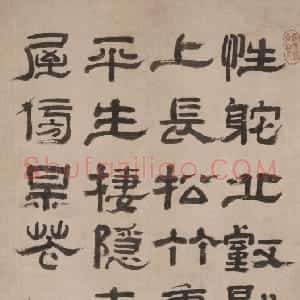 性躭丘壑
上長松竹
平生棲隱
屋傍果花
Shufaziliao.COM